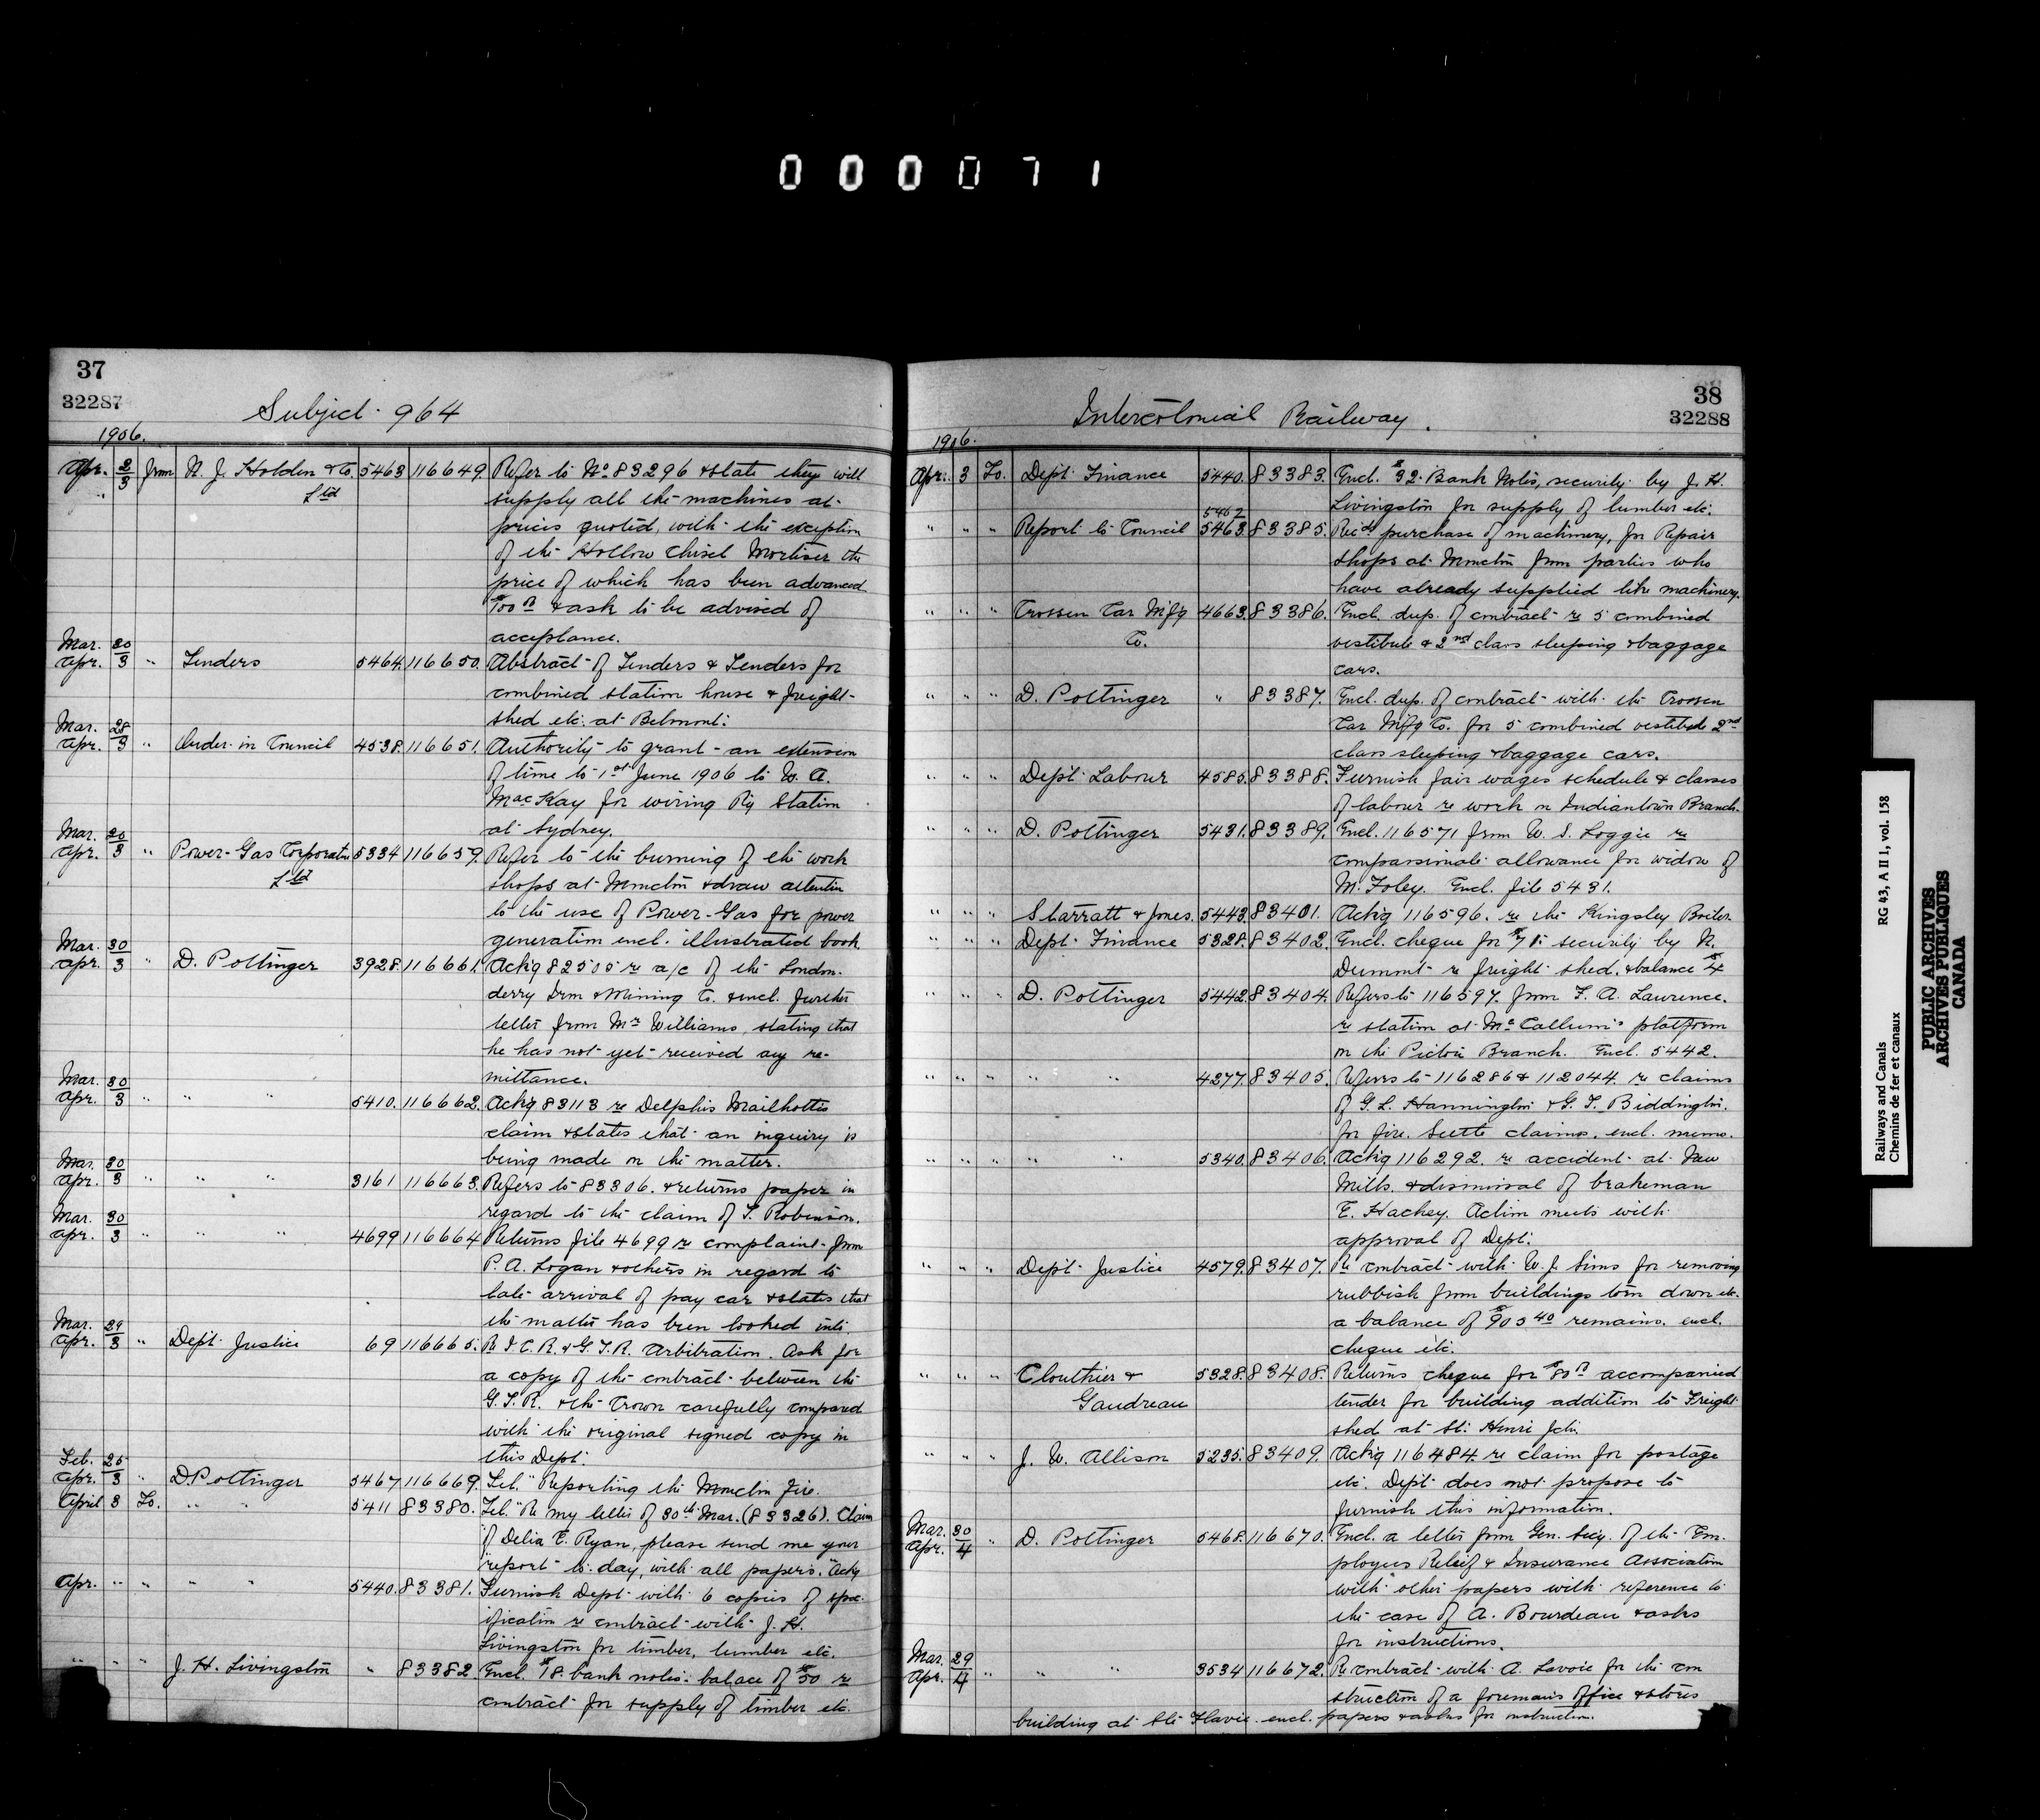 0 0 0 0 7 1
37
32287
Subject 964
1906.
Apr. 2/3 from N. J. Holden & Co. 5463 116649. Refer to No 83296 & state they will
" Ltd supply all the machines at
prices quoted, with the exception
of the Hollow Chisel Mortiser the
price of which has been advanced
$100 & ask to be advised of
acceptance.
Mar. 30
Apr. 3 " Tenders 5464. 116650. Abstract of Tenders & Tenders for
combined station house & freight
shed etc. at Belmont.
Mar. 28
Apr. 3 " Order in Council 4538. 116651. Authority to grant an extension
of time to 1st June 1906 to W. A.
MacKay for wiring Ry Station
at Sydney.
Mar. 20
Apr. 3 " Power-Gas Corporatn 5334 116659. Refer to the burning of the work
Ltd shops at Moncton & draw attention
to the use of Power-Gas for power
generation encl. illustrated book.
Mar. 30
Apr. 3 " D. Pottinger 3928. 116661. Ackg 82505 re a/c of the London-
derry Iron & Mining Co. & encl. further
letter from Mr Williams, stating that
he has not yet received any re-
mittance.
Mar. 30
Apr. 3 " " " 5410. 116662. Ackg 83113 re Delphis Mailhottes
claim & states that an inquiry is
being made on the matter.
Mar. 30
Apr. 3 " " " 3161 116663. Refers to 83306. & returns paper in
regard to the claim of T. Robinson.
Mar. 30
Apr. 3 " " " 4699 116664 Returns file 4699 re complaint from
P. A. Logan & others in regard to
late arrival of pay car & states that
the matter has been looked into.
Mar. 29
Apr. 3 " Dept. Justice 69 116665. Re I. C. R. & G. T. R. Arbitration. Ask for
a copy of the contract between the
G. T. R. & the Crown carefully compared
with the original signed copy in
this Dept.
Feb. 25
Apr. 3 " D. Pottinger 5467 116669. Tel. "Reporting the Moncton Fire.
April 3 To. " " 5411 83380. Tel. "Re my letter of 30th Mar. (83326). Claim
"of Delia E. Ryan, please send me your
"report to-day, with all papers." Ackg
Apr. " " " " 5440. 83381. Furnish Dept with 6 copies of spec-
ification re contract with J. H.
Livingston for timber, lumber etc.
" " " J. H. Livingston " 83382. Encl. $18. bank notes. balace of $50 re
contract for supply of timber etc.
38
32288
Intercolonial Railway.
1906.
Apr. 3 To. Dept. Finance 5440. 83383. Encl. $32. Bank Notes, security by J. H.
Livingston for supply of lumber etc.
5462
" " " Report to Council 5463. 83385. Recds purchase of machinery, for Repair
shops at Moncton from parties who
have already supplied like machinery.
" " " Crossen Car Mfg 4663. 83386. Encl. dup. of contract re 5 combined
Co. vestibule & 2nd class sleeping & baggage
cars.
" " " D. Pottinger " 83387. Encl. dup. of contract with the Crossen
Car Mfg Co. for 5 combined vestibule 2nd
class sleeping & baggage cars.
" " " Dept. Labour 4585. 83388. Furnish fair wages schedule & classes
of labour re work on Indiantown Branch.
" " " D. Pottinger 5431. 83389. Encl. 116571 from W. S. Loggie re
compassionate allowance for widow of
M. Foley. Encl. file 5431.
" " " Starratt & Jones. 5443. 83401. Ackg 116596. re the Kingsley Boiler.
" " " Dept. Finance 5328. 83402. Encl. cheque for $71. security by N.
Dumont re freight shed. & balance $4
" " " D. Pottinger 5442. 83404. Refers to 116597. from F. A. Lawrence.
re station at McCallum's platform
on the Pictou Branch. Encl. 5442.
" " " " " 4277. 83405. Refers to 116286 & 112044. re claims
of G. L. Hannington & G. T. Biddington.
for fire. Settle claims. encl. memo.
" " " " " 5340. 83406. Ackg 116292. re accident at New
Mills. & dismissal of brakeman
E. Hachey. Action meets with
approval of Dept.
" " " Dept. Justice 4579. 83407. Re contract with W. J. Sims for removing
rubbish from buildings torn down etc.
a balance of $905 40 remains. encl.
cheque etc.
" " " Clouthier & 5328. 83408. Returns cheque for $80 accompanied
Gaudreau tender for building addition to Freight
shed at St. Henri Jctn.
" " " J. W. Allison 5235. 83409. Ackg 116484. re claim for postage
etc. Dept. does not propose to
furnish this information.
Mar. 30
Apr. 4 " D. Pottinger 5468. 116670. Encl. a letter from Gen. Secy. of the Em-
ployees Relief & Insurance Association
with other papers with reference to
the case of A. Bourdeau & asks
for instructions.
Mar. 29
Apr. 4 " " " 3534 116672. Re contract with A. Lavoie for the con
struction of a foreman's office & stores
building at Ste Flavie. encl. papers & asks for instruction.
Railways and Canals RG 43, A II 1, vol. 158
Chemins de fer et canaux
PUBLIC ARCHIVES
ARCHIVES PUBLIQUES
CANADA